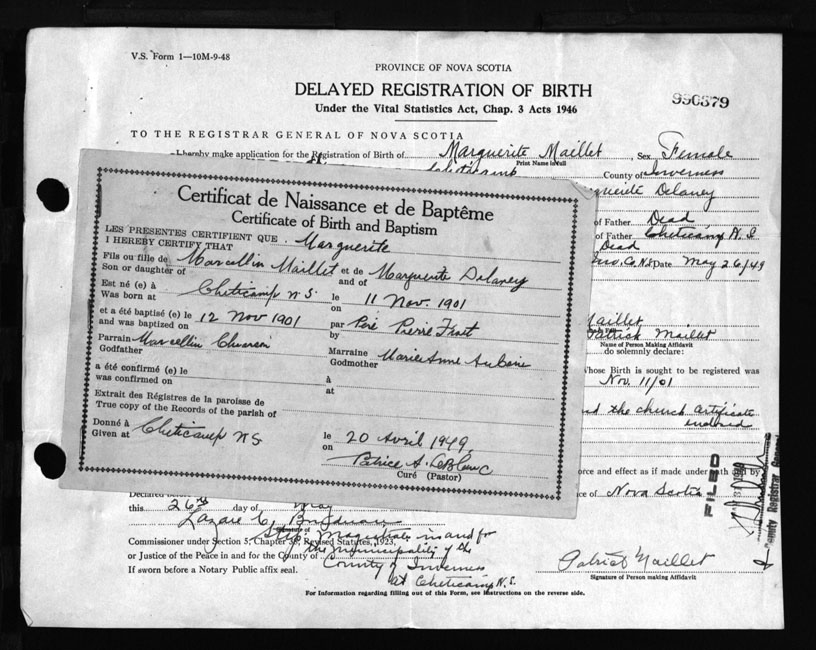 V.S. Form 1—10M-9-48
PROVINCE OF NOVA SCOTIA
DELAYED REGISTRATION OF BIRTH
Under the Vital Statistics Act, Chap. 3 Acts 1946
TO THE REGISTRAR GENERAL OF NOVA SCOTIA
I hereby make application for the Registration of Birth of Marguerite Maillet , Sex Female
Print Name in Full
Cheticamp County of Inverness
Delaney
of Father Dead
of Father Cheticamp N.S
Dead
Inv. Co. N.S Date May 26/49
Certificat de Naissance et de Baptême
Certificate of Birth and Baptism
LES PRESENTES CERTIFIENT QUE
I HEREBY CERTIFY THAT Marguerite
Fils ou fille de Marcellin Maillet et de Marguerite Delaney
Son or daughter of and of
Est né (e) à Cheticamp N.S. le 11 Nov. 1901
Was born at on
et a été baptisé (e) le 12 Nov 1901 par Père Pierre Fiset
and was baptized on by
Parrain Marcellin Marraine Marie Anne
Godfather Godmother
a été confirmé (e) le à
was confirmed on at
Extrait des Régistres de la paroisse de
True copy of the Records of the parish of
Donné à Cheticamp N.S le 20 Avril 1949
Given at on
Patrice A. LeBlanc
Curé (Pastor)
Maillet
Patrick Maillet
Name of Person Making Affidavit
do solemnly declare:
whose Birth is sought to be registered was
Nov. 11/01
the church certificate
enclosed
force and effect as if made under oath and by
of Nova Scotia
FILED
Deputy Registrar General
this 26th day of May
Signature of
Commissioner under Section 5, Chapter 38, Revised Statutes, 1923,
Stip. Magistrate in and for
or Justice of the Peace in and for the County of the Municipality of the
County of Inverness
If sworn before a Notary Public affix seal.
at Cheticamp N.S.
Patrick Maillet
Signature of Person making Affidavit
For Information regarding filling out of this Form, see instructions on the reverse side.